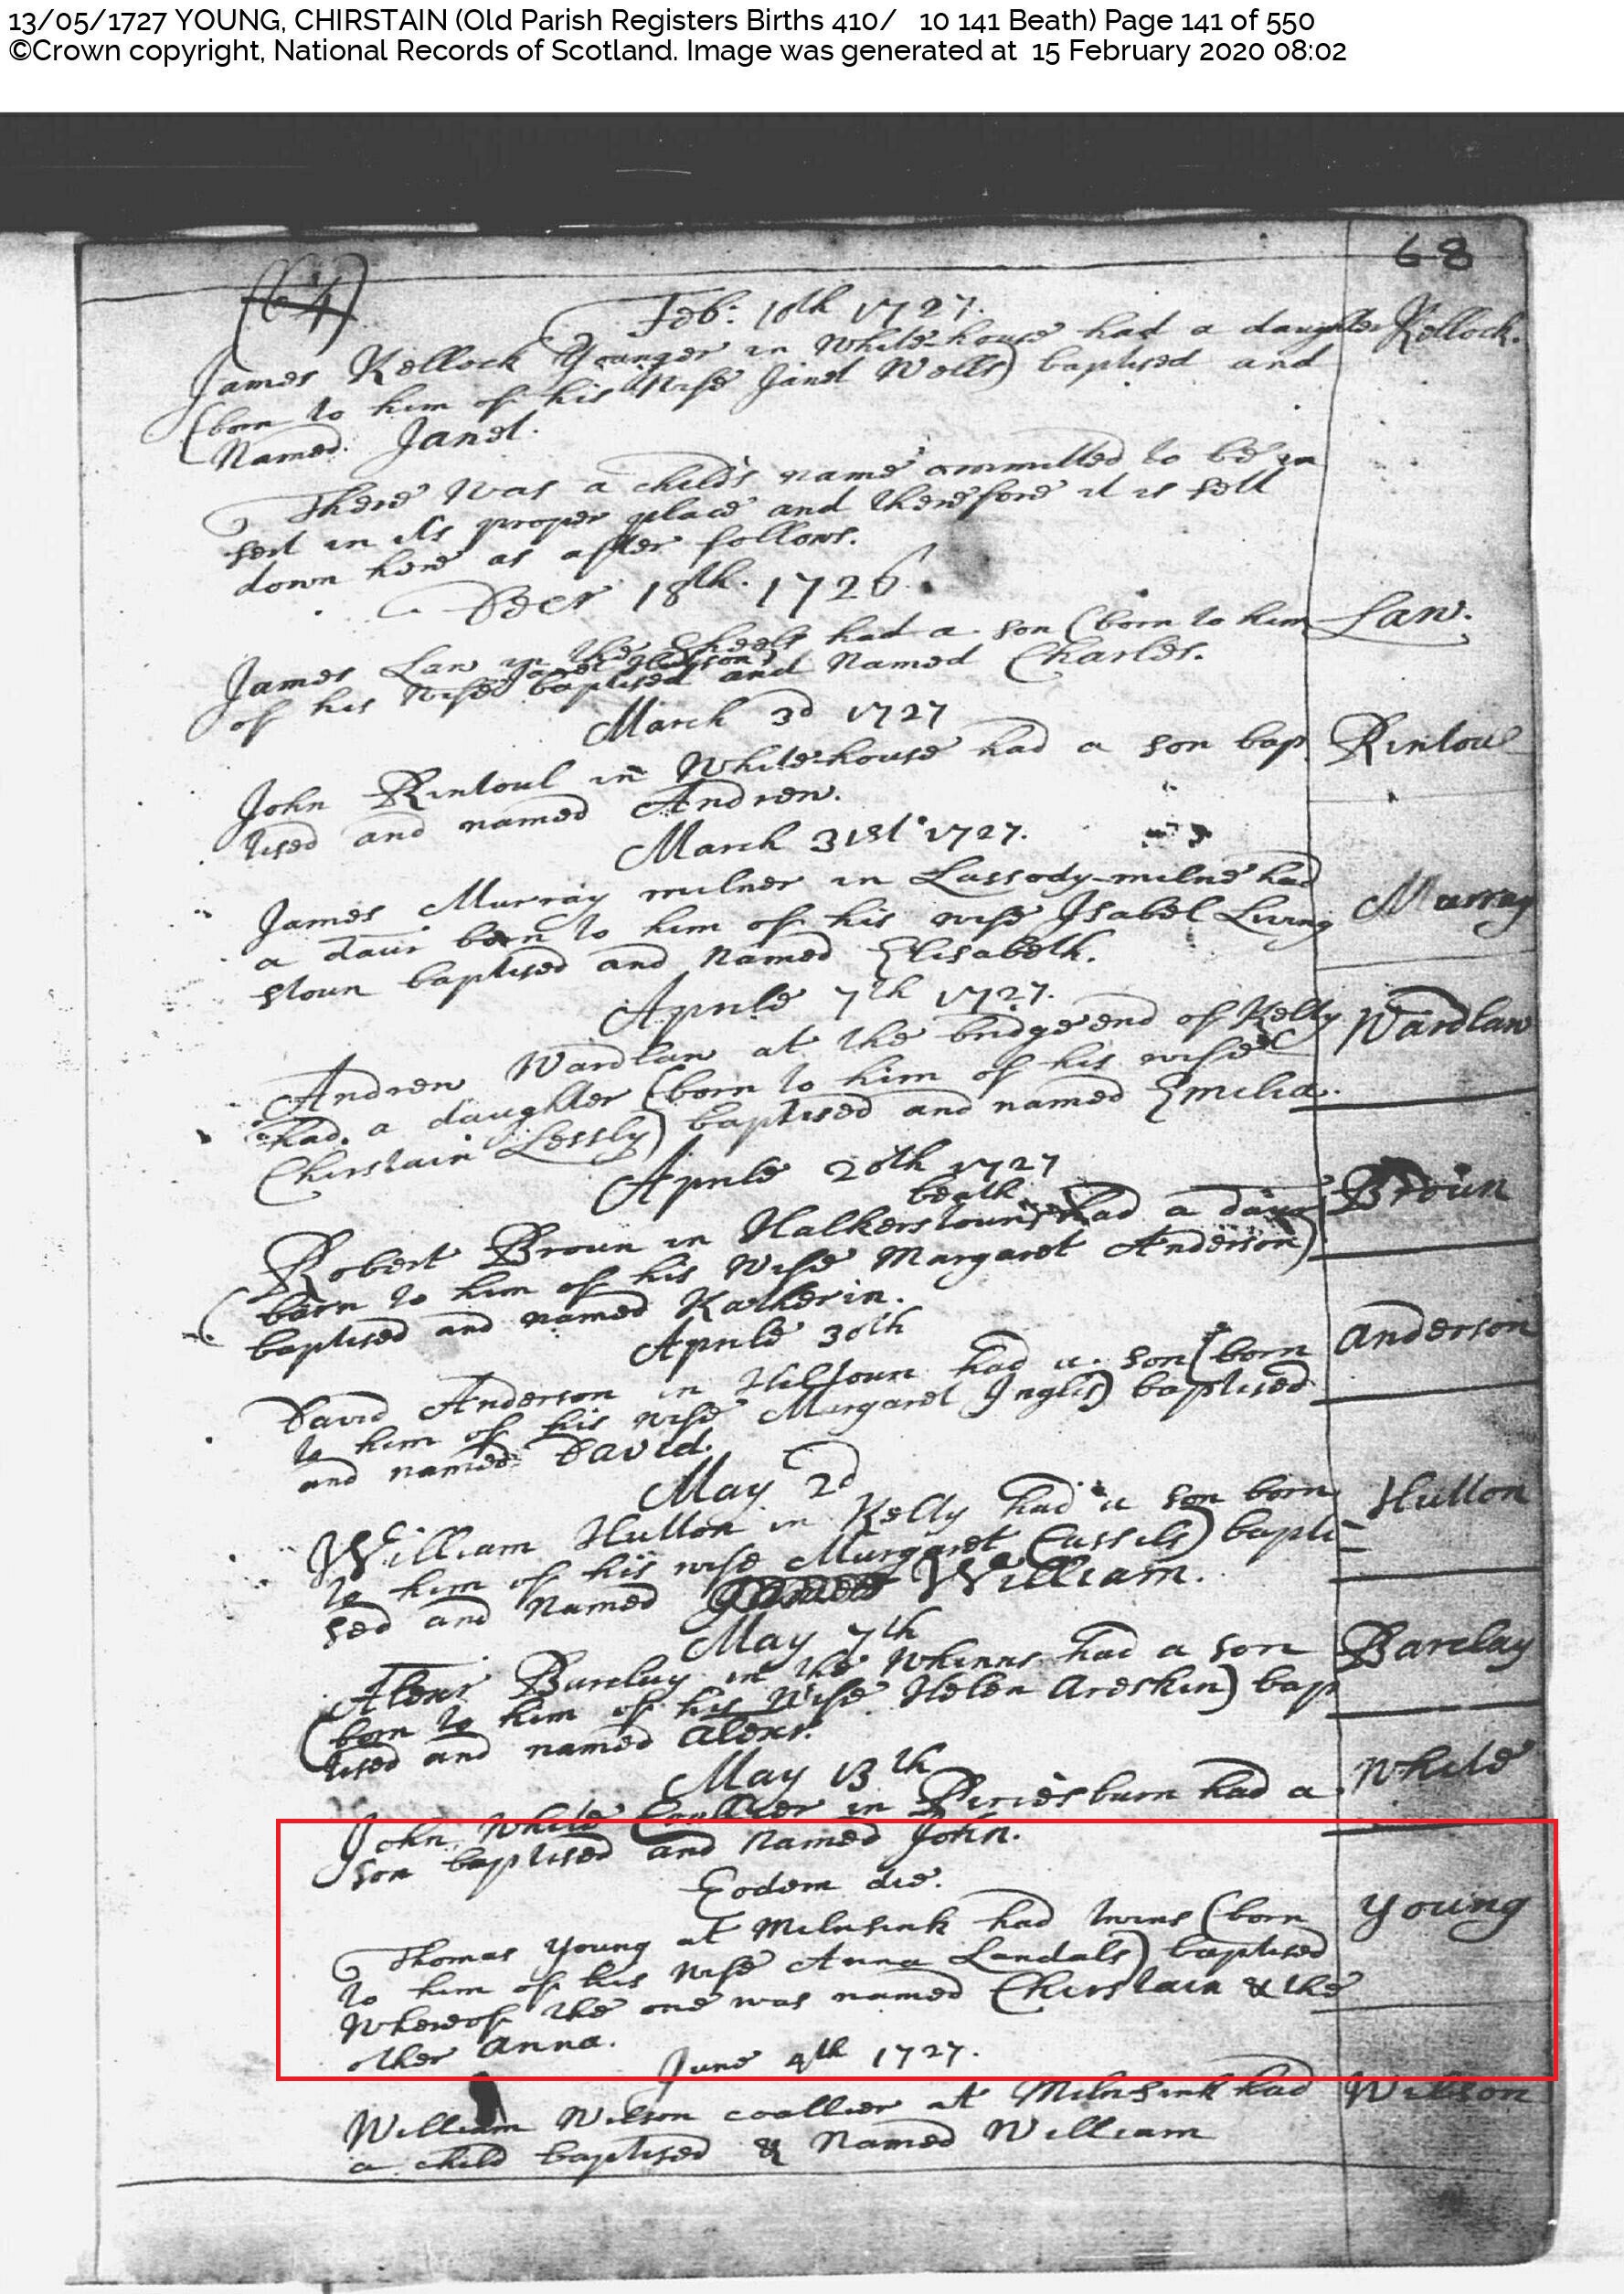 13/05/1727 YOUNG, CHIRSTAIN (Old Parish Registers Births 410/ 10 141 Beath) Page 141 of 550
©Crown copyright, National Records of Scotland. Image was generated at 15 February 2020 08:02
68
Feb: 10th 1727.
James Kellock Younger in Whitehouse had a daughter Kellock.
(born to him of his Wife Janet Wells) baptised and
Named Janet.
There was a child's name ommitted to be in
sert in its proper place and therefore it is sett
down here as after follows.
Decr 18th. 1726
James Law in the Sheels had a son (born to him Law.
of his Wife baptised and Named Charles.
March 3d 1727
John Rintoul in Whitehouse had a son bap Rintoul
tised and named Andrew.
March 31st 1727.
James Murray milner in Lassody-milne had Murray
a daur born to him of his wife Isabel Living
stoun baptised and Named Elisabeth.
Aprile 7th 1727.
Andrew Wardlaw at the bridge end of Kelty Wardlaw
had a daughter (born to him of his wife
Chirstain Lessly) baptised and named Emilia.
Aprile 20th 1727
beath
Robert Broun in Halkerstoun had a daur Broun
(born to him of his Wife Margaret Anderson)
baptised and named Katherin.
Aprile 30th
David Anderson in Hiltoun had a son (born Anderson
to him of his wife Margaret Inglis) baptised
and named David.
May 2d
William Hutton in Kelty had a son born Hutton
to him of his wife Margaret Cassils) bapti
sed and Named William.
May 7th
Alexr Barclay in the Whinns had a son Barclay
(born to him of his Wife Helen Areskin) bap
tised and named Alexr.
May 13th
John White Coallier in Piriesburn had a White
son baptised and Named John.
Eodem die.
Thomas Young at Milnsink had twins (born Young
to him of his Wife Anna Landals) baptised
Whereof the one was named Chirstain & the
other Anna.
June 4th 1727.
William Wilson coallier at Milnsink had Wilson
a child baptised & Named William